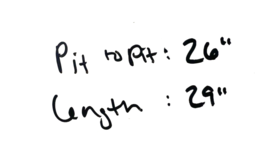 Pit to Pit: 26"
Length : 29"